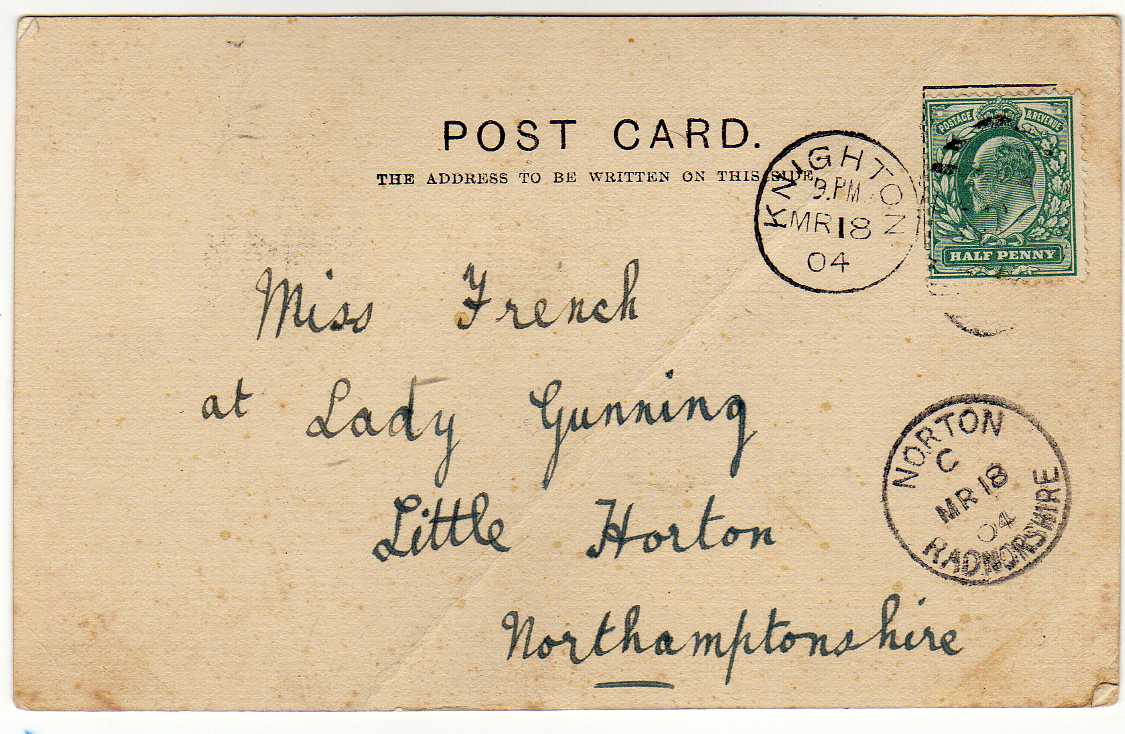 POST CARD.
THE ADDRESS TO BE WRITTEN ON THIS SIDE.
POSTAGE & REVENUE
HALF PENNY
KNIGHTON
9.PM
MR18
04
Miss French
at Lady Gunning
Little Horton
Northamptonshire
NORTON
C
MR18
04
RADNORSHIRE